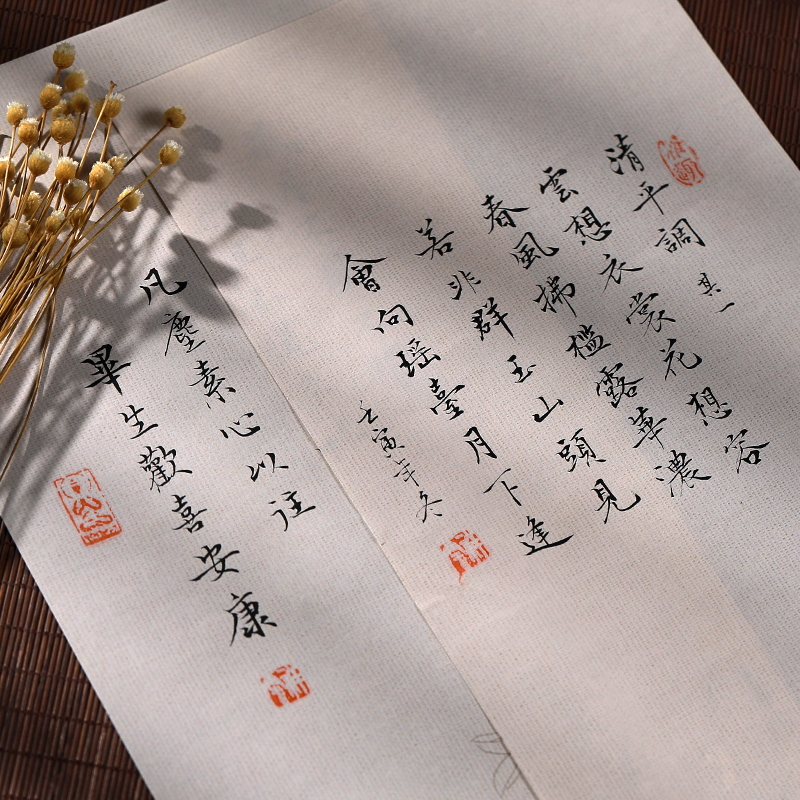 清平調 其一
雲想衣裳花想容
春風拂檻露華濃
若非群玉山頭見
會向瑶臺月下逢
壬寅年冬
凡塵素心以注
畢生歡喜安康